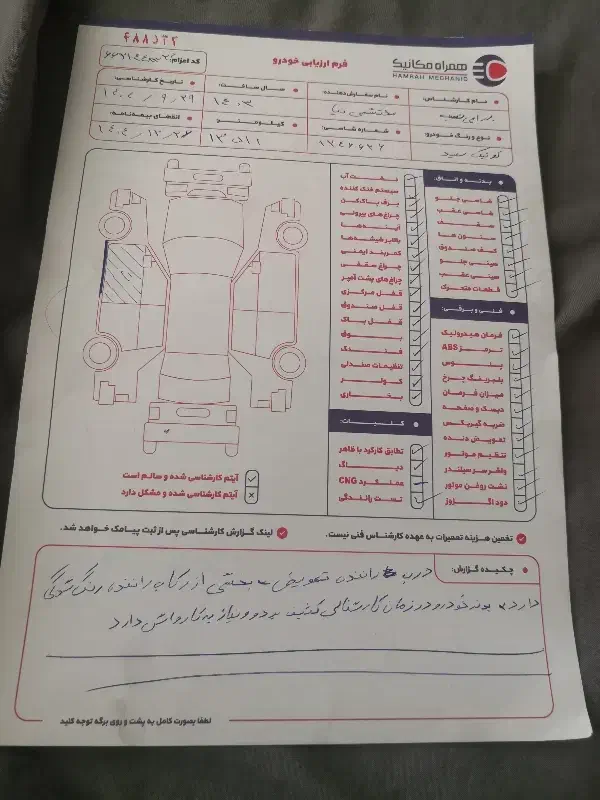 ۴۸۸۵۳۲
همراه مکانیک
HAMRAH MECHANIC
فرم ارزیابی خودرو
کد اعزام:
نام کارشناس:
نام سفارش دهنده:
سال ساخت: ۱۴۰۳
تاریخ کارشناسی: ۱۴۰۴/۹/۲۹
نوع و رنگ خودرو: کوئیک سفید
شماره شاسی:
کیلومتر:
انقضای بیمه‌نامه:
بدنه و اتاق:
شاسی جلو
شاسی عقب
سقف
ستون ها
کف صندوق
سینی جلو
سینی عقب
قطعات متحرک
فنی و برقی:
فرمان هیدرولیک
ترمز ABS
پلوس
بلبرینگ چرخ
میزان فرمان
دیسک و صفحه
ضربه گیربکس
تعویض دنده
تنظیم موتور
واشر سر سیلندر
نشت روغن موتور
دود اگزوز
نشت آب
سیستم خنک کننده
برف پاک‌کن
چراغ‌های بیرونی
آینه‌ها
بالابر شیشه‌ها
کمربند ایمنی
چراغ سقفی
چراغ‌های پشت آمپر
قفل مرکزی
قفل صندوق
قفل باک
بوق
فندک
تنظیمات صندلی
کولر
بخاری
کلیات:
تطابق کارکرد با ظاهر
دیاگ
عملکرد CNG
تست رانندگی
آیتم کارشناسی شده و سالم است
آیتم کارشناسی شده و مشکل دارد
تخمین هزینه تعمیرات به عهده کارشناس فنی نیست.
لینک گزارش کارشناسی پس از ثبت پیامک خواهد شد.
چکیده گزارش:
درب راننده تعویض - بخشی از رکاب راننده رنگ شدگی
دارد، بدنه خودرو در زمان کارشناسی کثیف بوده و نیاز به کارواش دارد
لطفا بصورت کامل به پشت و روی برگه توجه کنید